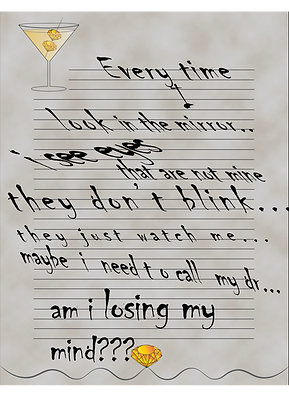 Every time
I
look in the mirror..
i see eyes
that are not mine
they don't blink...
they just watch me...
maybe i need to call my dr...
am i losing my
mind???